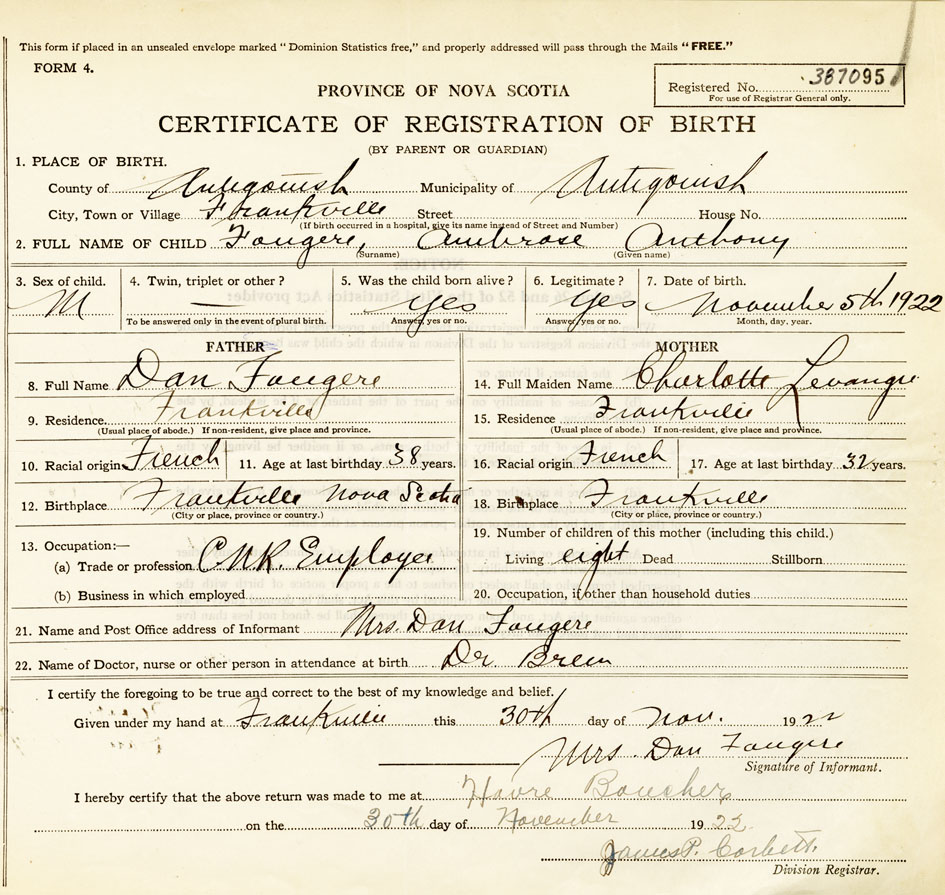 This form if placed in an unsealed envelope marked "Dominion Statistics free," and properly addressed will pass through the Mails "FREE."
FORM 4.
Registered No. 387095
For use of Registrar General only.
PROVINCE OF NOVA SCOTIA
CERTIFICATE OF REGISTRATION OF BIRTH
(BY PARENT OR GUARDIAN)
1. PLACE OF BIRTH.
County of Antigonish Municipality of Antigonish
City, Town or Village Frankville Street House No.
(If birth occurred in a hospital, give its name instead of Street and Number)
2. FULL NAME OF CHILD Fougere, Ambrose Anthony
(Surname) (Given name)
3. Sex of child. 4. Twin, triplet or other? 5. Was the child born alive? 6. Legitimate? 7. Date of birth.
M — yes yes November 5th 1922
To be answered only in the event of plural birth. Answer, yes or no. Answer, yes or no. Month, day, year.
FATHER MOTHER
8. Full Name Dan Fougere 14. Full Maiden Name Charlotte Levangie
9. Residence Frankville 15. Residence Frankville
(Usual place of abode.) If non-resident, give place and province. (Usual place of abode.) If non-resident, give place and province.
10. Racial origin French 11. Age at last birthday 38 years. 16. Racial origin French 17. Age at last birthday 32 years.
12. Birthplace Frankville Nova Scotia 18. Birthplace Frankville
(City or place, province or country.) (City or place, province or country.)
13. Occupation:— 19. Number of children of this mother (including this child.)
(a) Trade or profession C.N.R. Employee Living eight Dead Stillborn
(b) Business in which employed 20. Occupation, if other than household duties
21. Name and Post Office address of Informant Mrs. Dan Fougere
22. Name of Doctor, nurse or other person in attendance at birth Dr.
I certify the foregoing to be true and correct to the best of my knowledge and belief.
Given under my hand at Frankville this 30th day of Nov. 1922
Mrs. Dan Fougere
Signature of Informant.
I hereby certify that the above return was made to me at Havre Boucher
on the 30th day of November 1922
James P. Corbett
Division Registrar.